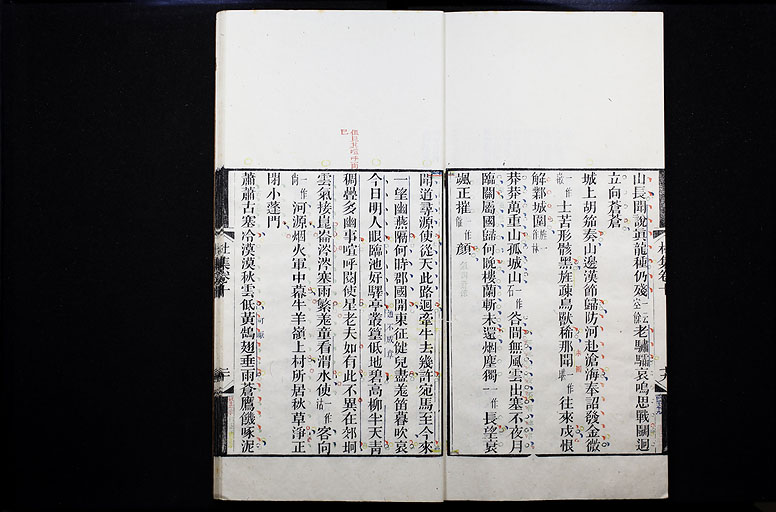 山長聞說真龍種仍殘一云空餘老驌驦哀鳴思戰鬬迥
立向蒼蒼
城上胡笳奏山邊漢節歸防河赴滄海奉詔發金微
士苦形骸黑旌疎鳥獸稀那聞一作往來戍恨
解鄴城圍
莽莽萬重山孤城山一作石谷間無風雲出塞不夜月
臨關屬國歸何晚樓蘭斬未還烟塵獨一作長望衰
颯正摧顏
聞道尋源使從天此路迴牽牛去幾許宛馬至今來
一望幽燕隔何時郡國開東征健兒盡羗笛暮吹哀
今日明人眼臨池好驛亭叢篁低地碧高柳半天青
稠疊多幽事喧呼閱使星老夫如有此不異在郊坰
雲氣接崑崙涔涔塞雨繁羗童看渭水使一作估客向
一作尚河源烟火軍中幕牛羊嶺上村所居秋草淨正
閉小蓬門
蕭蕭古塞冷漠漠秋雲低黃鵠翅垂雨蒼鷹饑啄泥
杜集卷十